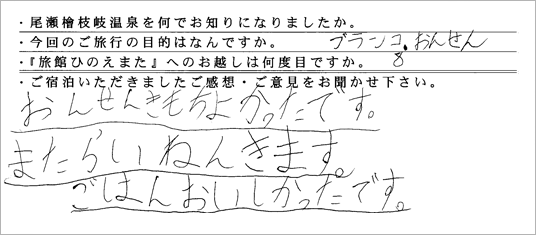 ・尾瀬檜枝岐温泉を何でお知りになりましたか。
・今回のご旅行の目的はなんですか。 ブランコ、おんせん
・『旅館ひのえまた』へのお越しは何度目ですか。 8
・ご宿泊いただきましたご感想・ご意見をお聞かせ下さい。
おんせんきもちよかったです。
またらいねんきます。
ごはんおいしかったです。